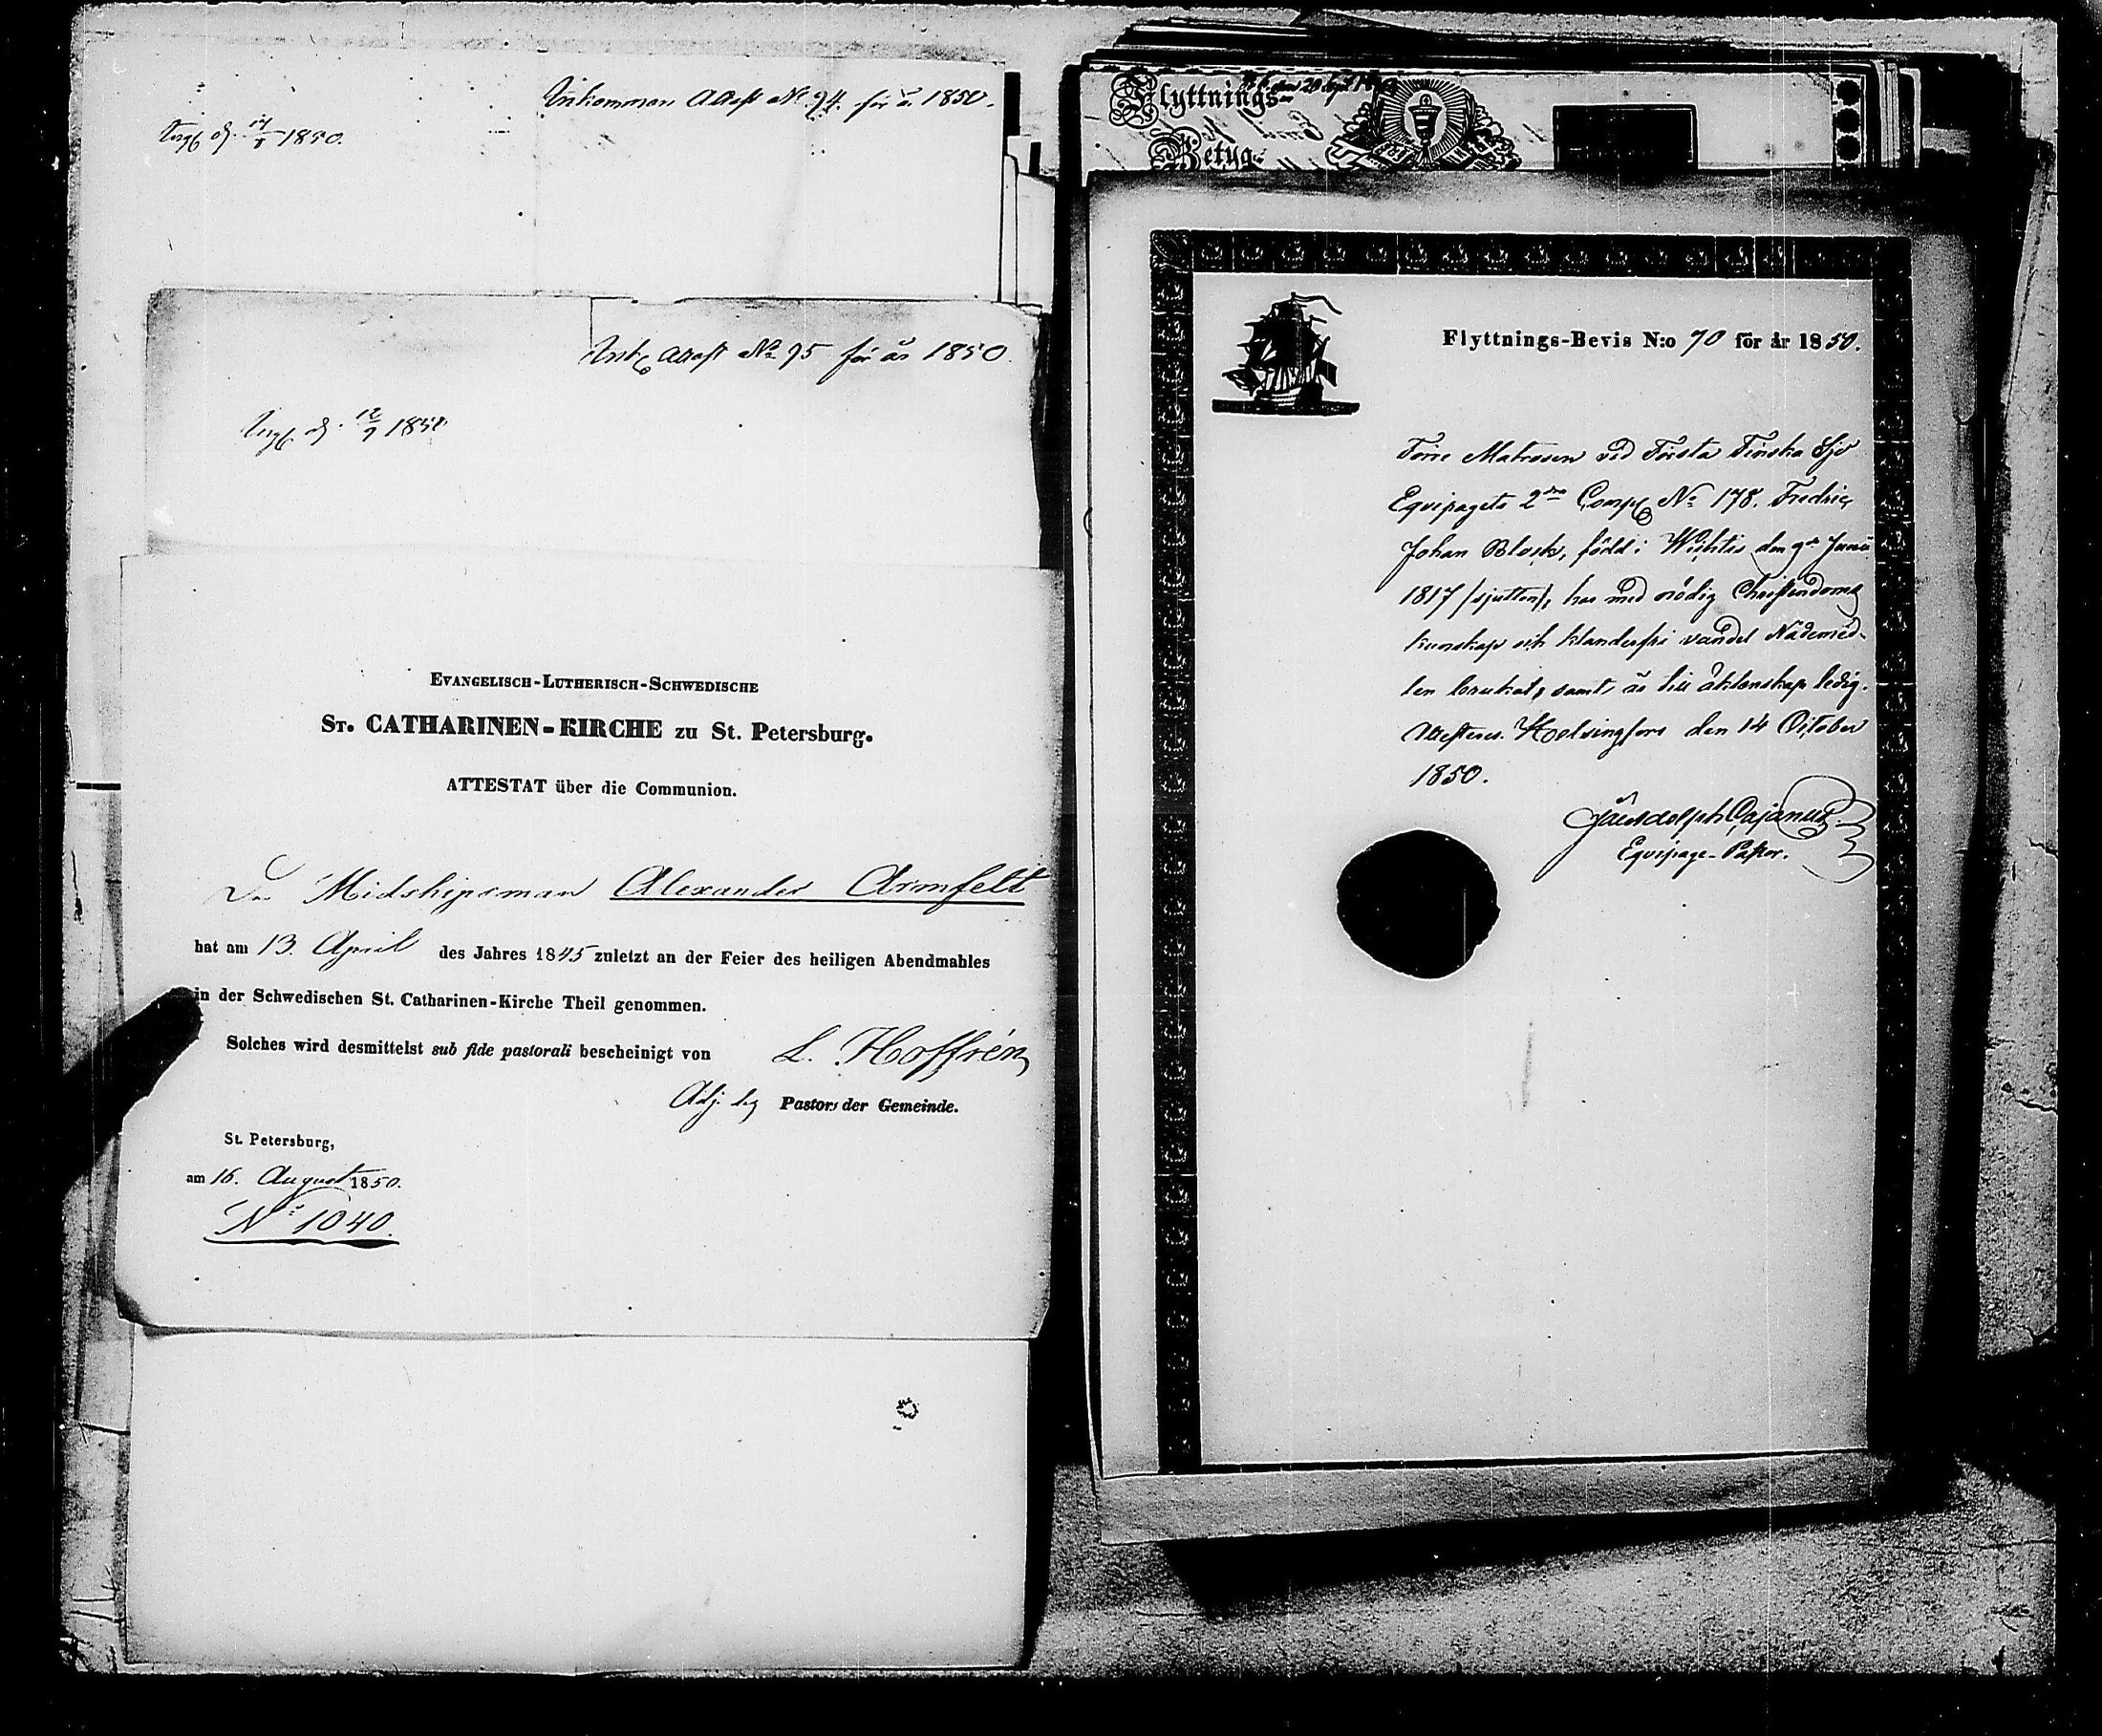 Inkommen Attest No 94. för år 1850.
1850.
Ink. Attest No 95 för år 1850.
d. 12/9 1850
EVANGELISCH-LUTHERISCH-SCHWEDISCHE
ST. CATHARINEN-KIRCHE zu St. Petersburg.
ATTESTAT über die Communion.
Der Midshipsman Alexander Armfelt
hat am 13. April des Jahres 1845 zuletzt an der Feier des heiligen Abendmahles
in der Schwedischen St. Catharinen-Kirche Theil genommen.
Solches wird desmittelst sub fide pastorali bescheinigt von L. Hoffrén
Adj. des Pastors der Gemeinde.
St. Petersburg,
am 16. August 1850.
No 1040.
Flyttnings-
Betyg
Flyttnings-Bevis N:o 70 för år 1850.
Förre Matrosen vid Första Finska Sjö
Equipagets 2dra Comp. No 178. Fredric
Johan Block, född i Wichtis den 9de Junii
1817 /sjutton/, har med nödig Christendoms
kunskap och klanderfri vandel Nådemed-
len brukat, samt är till äktenskap ledig.
Attesteras. Helsingfors den 14 October
1850.
Cajanus.
Equipage-Pastor.